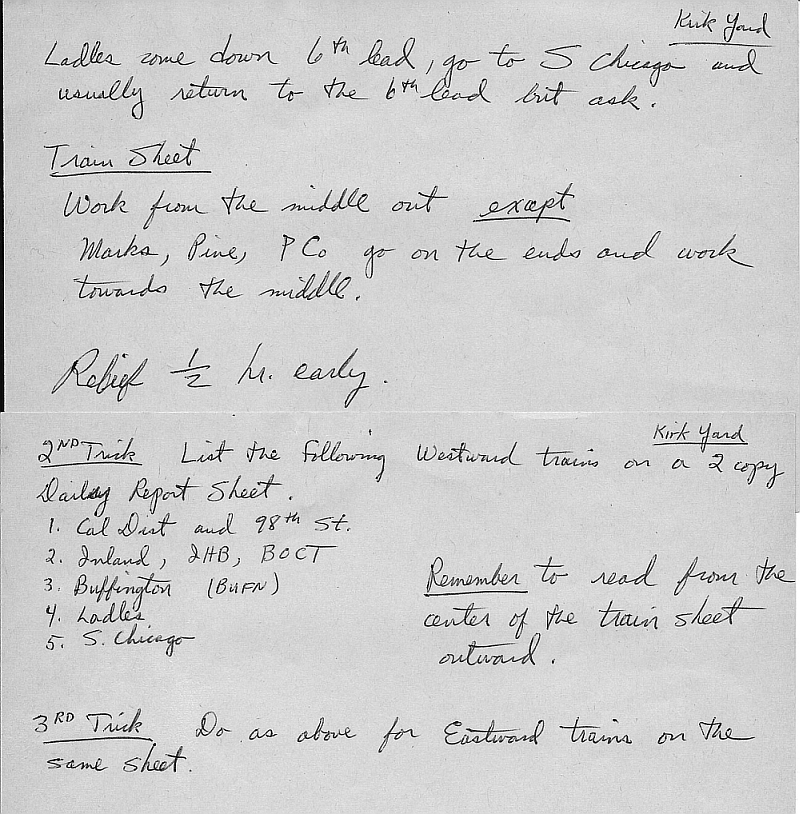 Kirk Yard
Ladles come down 6th lead, go to S Chicago and
usually return to the 6th lead but ask.
Train Sheet
Work from the middle out except
Marks, Pine, P Co go on the ends and work
towards the middle.
Relief 1/2 hr. early.
Kirk Yard
2ND Trick List the following Westward trains on a 2 copy
Dailay Report Sheet.
1. Cal Dist and 98th St.
2. Inland, IHB, BOCT
3. Buffington (BUFN)
4. Ladles
5. S. Chicago
Remember to read from the
center of the train sheet
outward.
3RD Trick Do as above for Eastward trains on the
same sheet.